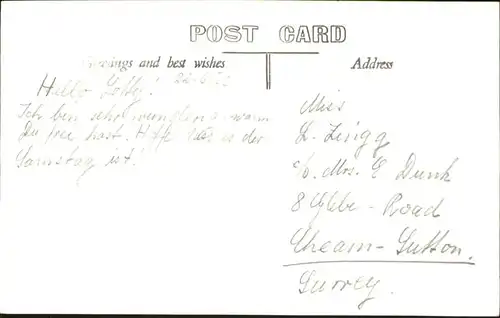 POST CARD
Greetings and best wishes
Address
Hello Lotty!
Ich bin sehr wann
Du free hast. Hoffe dass es der
Samstag ist!
Miss
L. Zingg
c/o Mrs. E Dunk
8 Glebe - Road
Cheam - Sutton.
Surrey.